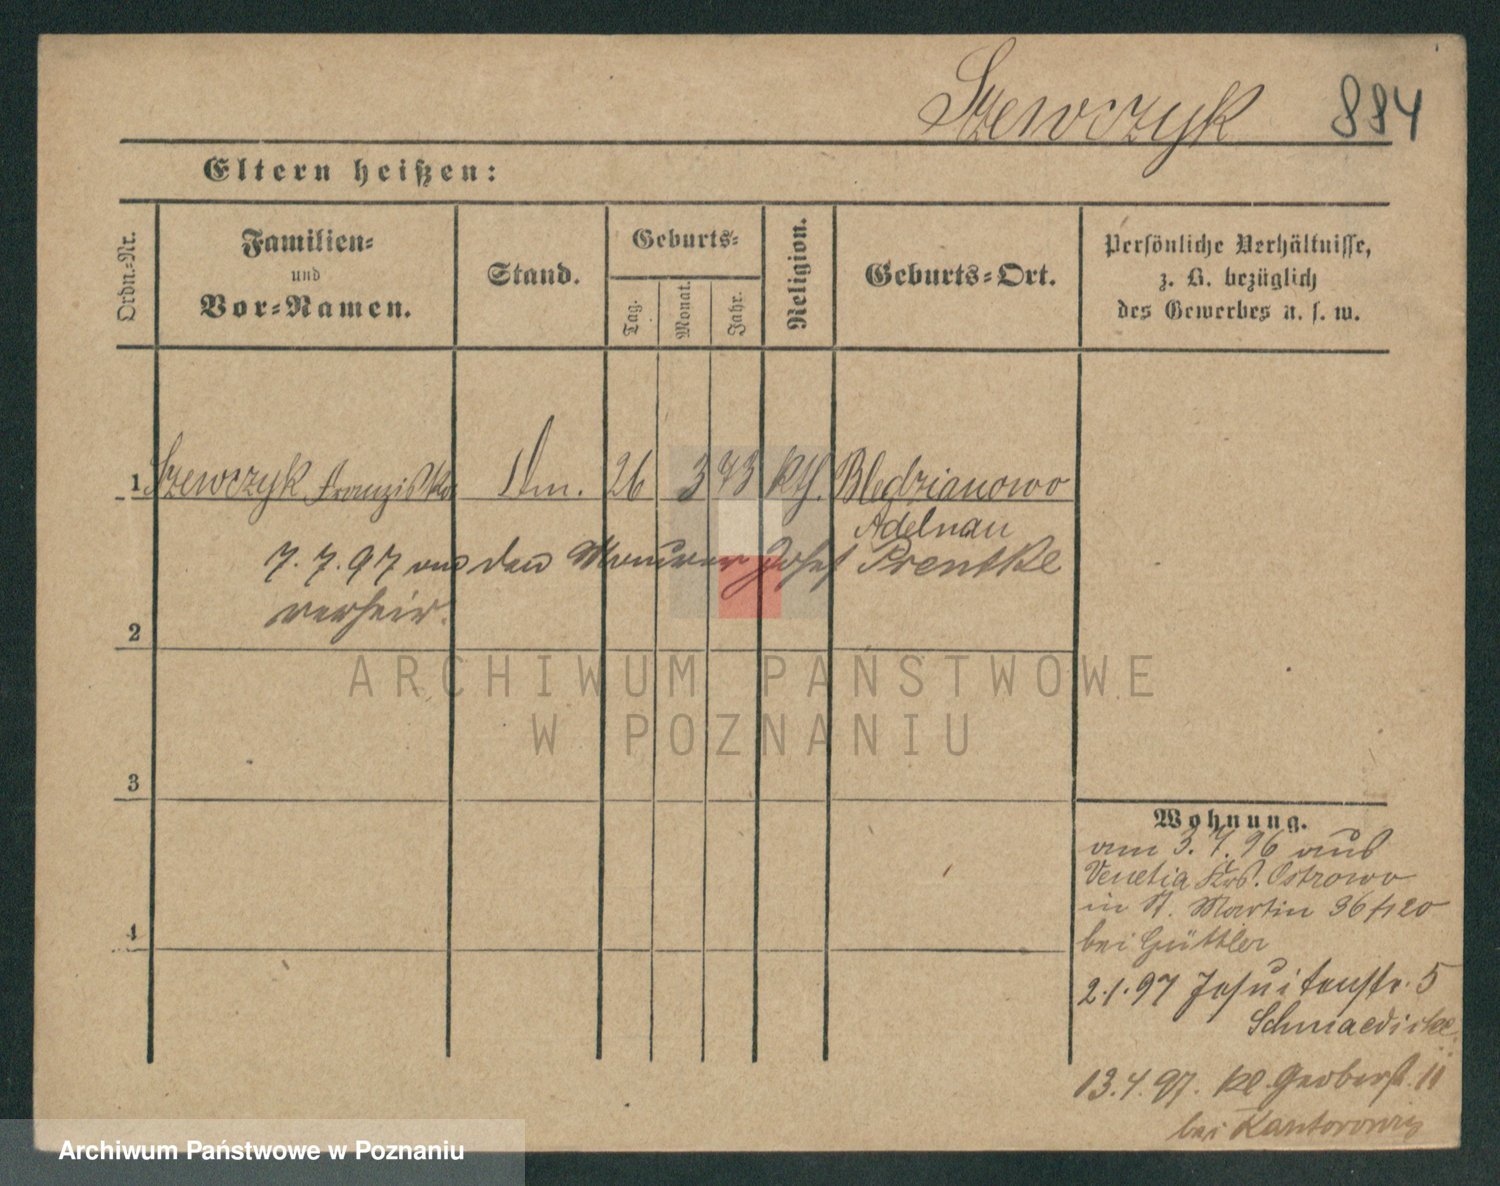 Szewczyk 884
Eltern heißen:
Ordn.-Nr.
Familien-
und
Vor-Namen.
Stand.
Geburts-
Tag.
Monat.
Jahr.
Religion.
Geburts-Ort.
Persönliche Verhältnisse,
z. B. bezüglich
des Gewerbes u. s. w.
1 Szewczyk Franziska 26 3 73 kth. Bledzianowo
Adelnau
7. 7. 97 an den Maurer Josef Prentke
verheir.
2
3
4
Wohnung.
am 3. 7. 96 aus
Venetia Krs. Ostrowo
in St. Martin 36
bei Güttler
2.1.97 Jesuitenstr. 5
13.4.97. kl. Gerberstr. 11
bei
ARCHIWUM PAŃSTWOWE
W POZNANIU
Archiwum Państwowe w Poznaniu